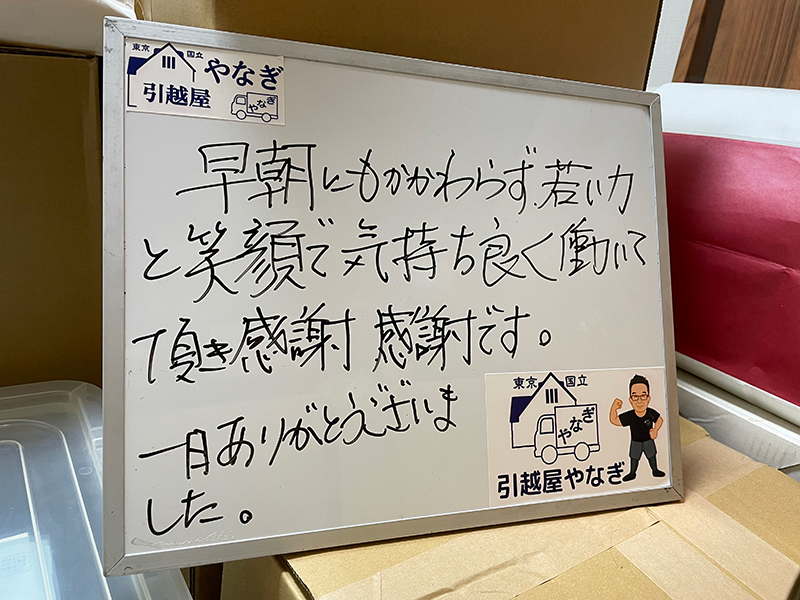 東京 国立
やなぎ
引越屋
やなぎ
早朝にもかかわらず、若い力
と笑顔で気持ち良く働いて
頂き感謝感謝です。
一日ありがとうございま
した。
東京 国立
やなぎ
引越屋やなぎ